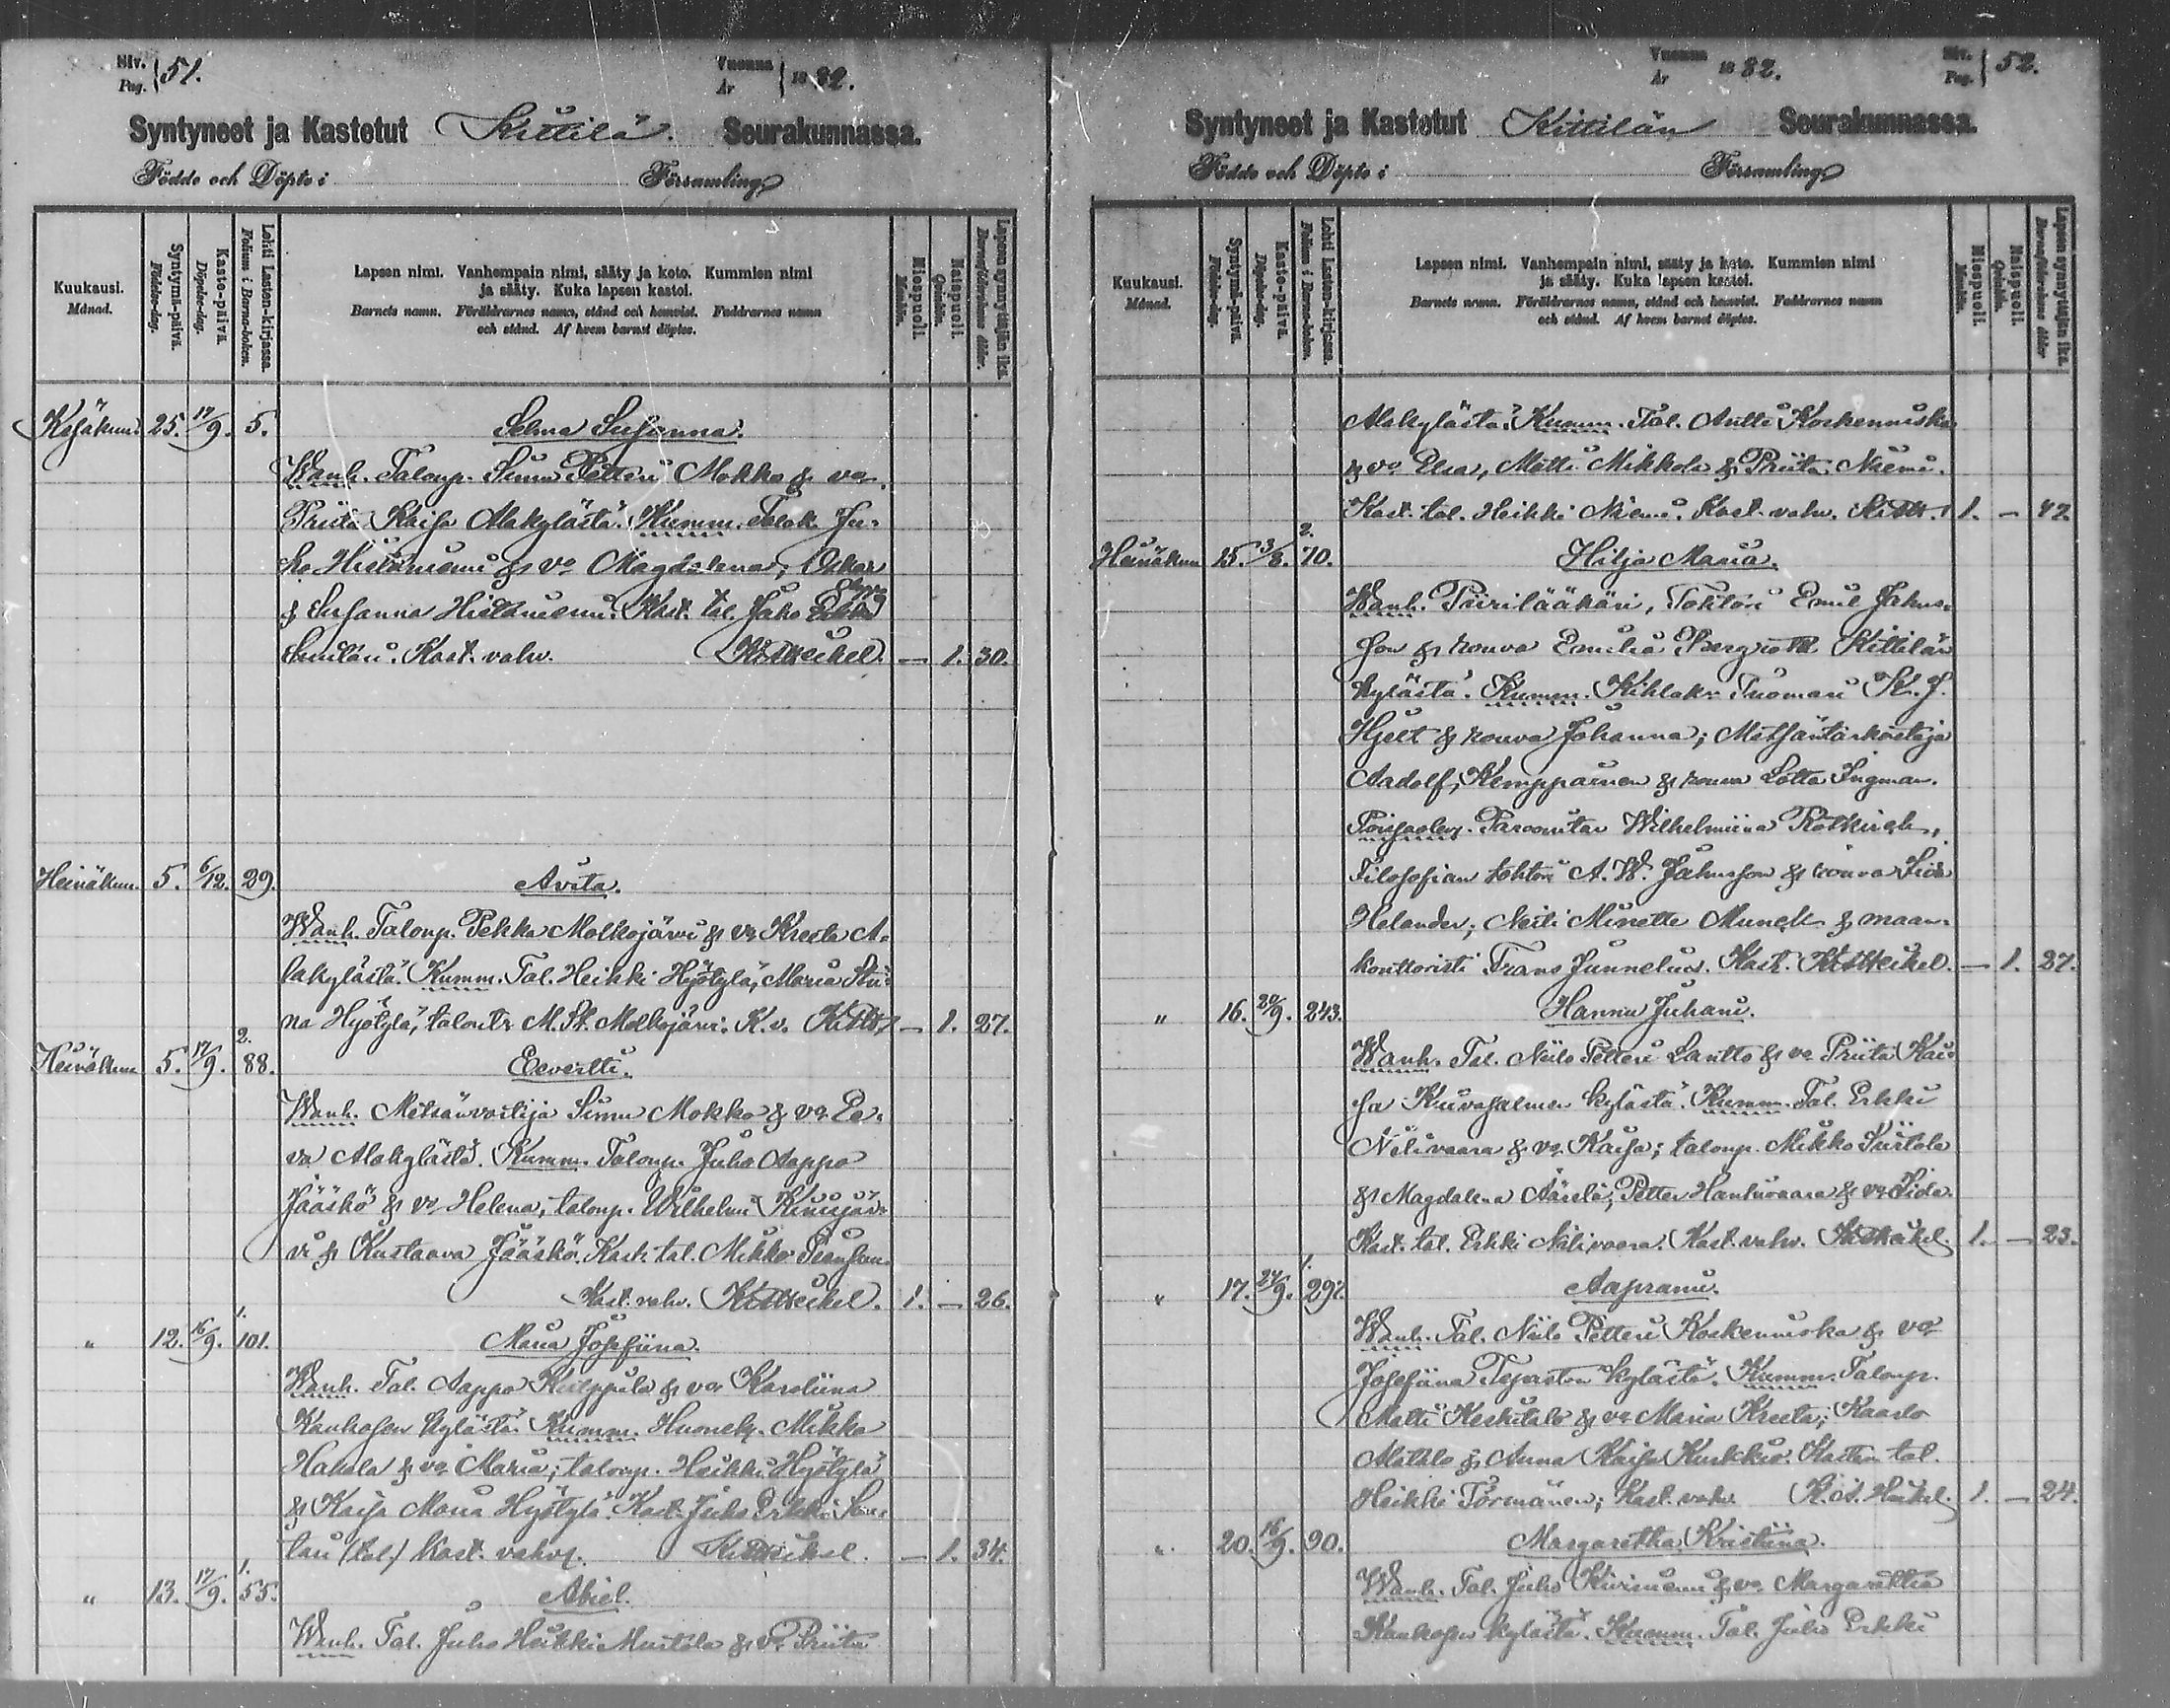 Siv. Pag. } 51.
Vuonna År } 1882.
Syntyneet ja Kastetut Kittilä. Seurakunnassa.
Födde och Döpte i Församling
Kuukausi. Månad.
Syntymä-päivä. Födelse-dag.
Kasto-päivä. Döpelse-dag.
Lehti Lasten-kirjassa. Folium i Barna-boken.
Lapsen nimi. Vanhempain nimi, sääty ja koto. Kummien nimi
ja sääty. Kuka lapsen kastoi.
Barnets namn. Föräldrarnes namn, stånd och hemvist. Faddrarnes namn
och stånd. Af hvem barnet döptes.
Miespuoli. Mankön.
Naispuoli. Qvinkön.
Lapsen synnyttäjän ikä. Barnaföderskans ålder.
Kesäkuu 25. 17/9. 5. Selma Susanna.
Wanh. Taloup. Simu Petteri Mokko & vo.
Priita Kaisa Alakylästä. Kumm. Talok. Ju-
ho Hietaniemi & vo Magdalena; Oskar
& Susanna Hietaniemi. Kast. tal. Juho
Kast. vahv. — 1. 30.
Heinäkuu. 5. 6/12. 29. Avita.
Wanh. Taloup. Pekka Molkojärvi & vo Kreeta A-
lakylästä. Kumm. Tal. Heikki Hyötylä, Maria Stii-
na Hyötylä, talontr M. St. Molkojärvi. K. v. — 1. 27.
Heinäkuu 5. 17/9. 2. 88. Eevertti.
Wanh. Metsänvartija Simu Mokko & vo. Ee-
va Alakylästä. Kumm. Taloup. Juho Aappo
Jääskö & vo Helena, taloup. Wilhelmi Kinisjär-
vi & Kustaava Jääskö. Kast. tal. Mikko
Kast. vahv. 1. — 26.
" 12. 16/9. 1. 101. Maria Josefiina.
Wanh. Tal. Aappo Keilppula & vo Karoliina
Kaukosen kylästä. Kumm. Huonek. Mikko
Hakala & vo Maria; taloup. Heikki Hyötylä
& Kaisa Maria Hyötylä. Kast. Juho Erkki
(tal.) Kast. vahv. — 1. 34.
" 13. 17/9. 1. 55. Abiel.
Wanh. Tal. Juho Heikki & vo. Priita
Vuonna År 1882.
Siv. Pag. } 52.
Syntyneet ja Kastetut Kittilän Seurakunnassa.
Födde och Döpte i Församling
Kuukausi. Månad.
Syntymä-päivä. Födelse-dag.
Kasto-päivä. Döpelse-dag.
Lehti Lasten-kirjassa. Folium i Barna-boken.
Lapsen nimi. Vanhempain nimi, sääty ja koto. Kummien nimi
ja sääty. Kuka lapsen kastoi.
Barnets namn. Föräldrarnes namn, stånd och hemvist. Faddrarnes namn
och stånd. Af hvem barnet döptes.
Miespuoli. Mankön.
Naispuoli. Qvinkön.
Lapsen synnyttäjän ikä. Barnaföderskans ålder
Alakylästä. Kumm. Tal. Antti Koskenniska
& vo Elsa, Matti Mikkola & Priita Niemi.
Kast. tal. Heikki Niemi. Kast. vahv. 1. — 42.
Heinäkuu 15. 3/8. 2. 70. Hilja Maria.
Wanh. Piirilääkäri, Tohtori Emil Jahns-
son & rouva Emilia Bergroth Kittilän
kylästä. Kumm. Kihlak. Tuomari K. J.
Hjelt & rouva Johanna; Metsäntarkastaja
Aadolf Kemppainen & rouva Lotta Ingman.
Poissaolev. Paroonitar Wilhelmiina Rotkirch,
Filosofian tohtori A. W. Jahnsson & rouva Iida
Helander; Neiti Minette Munck & maan-
konttoristi Frans Junnelius. Kast. — 1. 27.
" 16. 20/9. 243. Hannu Juhani.
Wanh. Tal. Niilo Petteri Lantto & vo Priita Kai-
sa Kuivasalmen kylästä. Kumm. Tal. Erkki
Nälivaara & vo. Kaisa; taloup. Mikko Siitola
& Magdalena Äärelä; Petter Hanhivaara & vo Iida.
Kast. tal. Erkki Nälivaara. Kast. vahv. 1. — 23.
" 17. 24/9. 1. 292. Aaprami.
Wanh. Tal. Niilo Petteri Koskenniska & vo
Josefiina Tepaston kylästä. Kumm. Taloup.
Matti Keskitalo & vo Maria Kreeta; Kaarlo
Alatalo & Anna Kaisa Kurkkio. Kasten tal.
Heikki Törmänen; Kast. vahv. 1. — 24.
" 20. 16/9. 90. Margaretha Kristiina.
Wanh. Tal. Juho Kiviniemi & vo. Margaretha
Kaukosen kylästä. Kumm. Tal. Juho Erkki